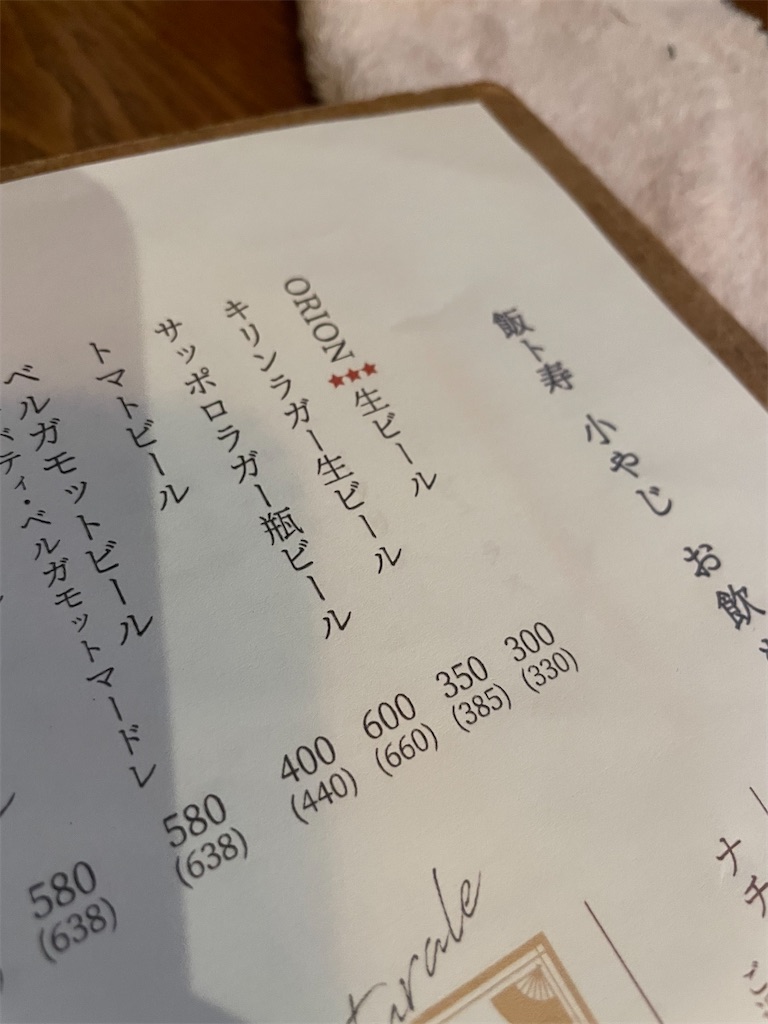 飯ト寿 小やじ お飲
ORION ★★★ 生ビール 300 (330)
キリンラガー生ビール 350 (385)
サッポロラガー瓶ビール 600 (660)
トマトビール 400 (440)
ベルガモットビール 580 (638)
ベティ・ベルガモットマードレ 580 (638)
ナチ
ご